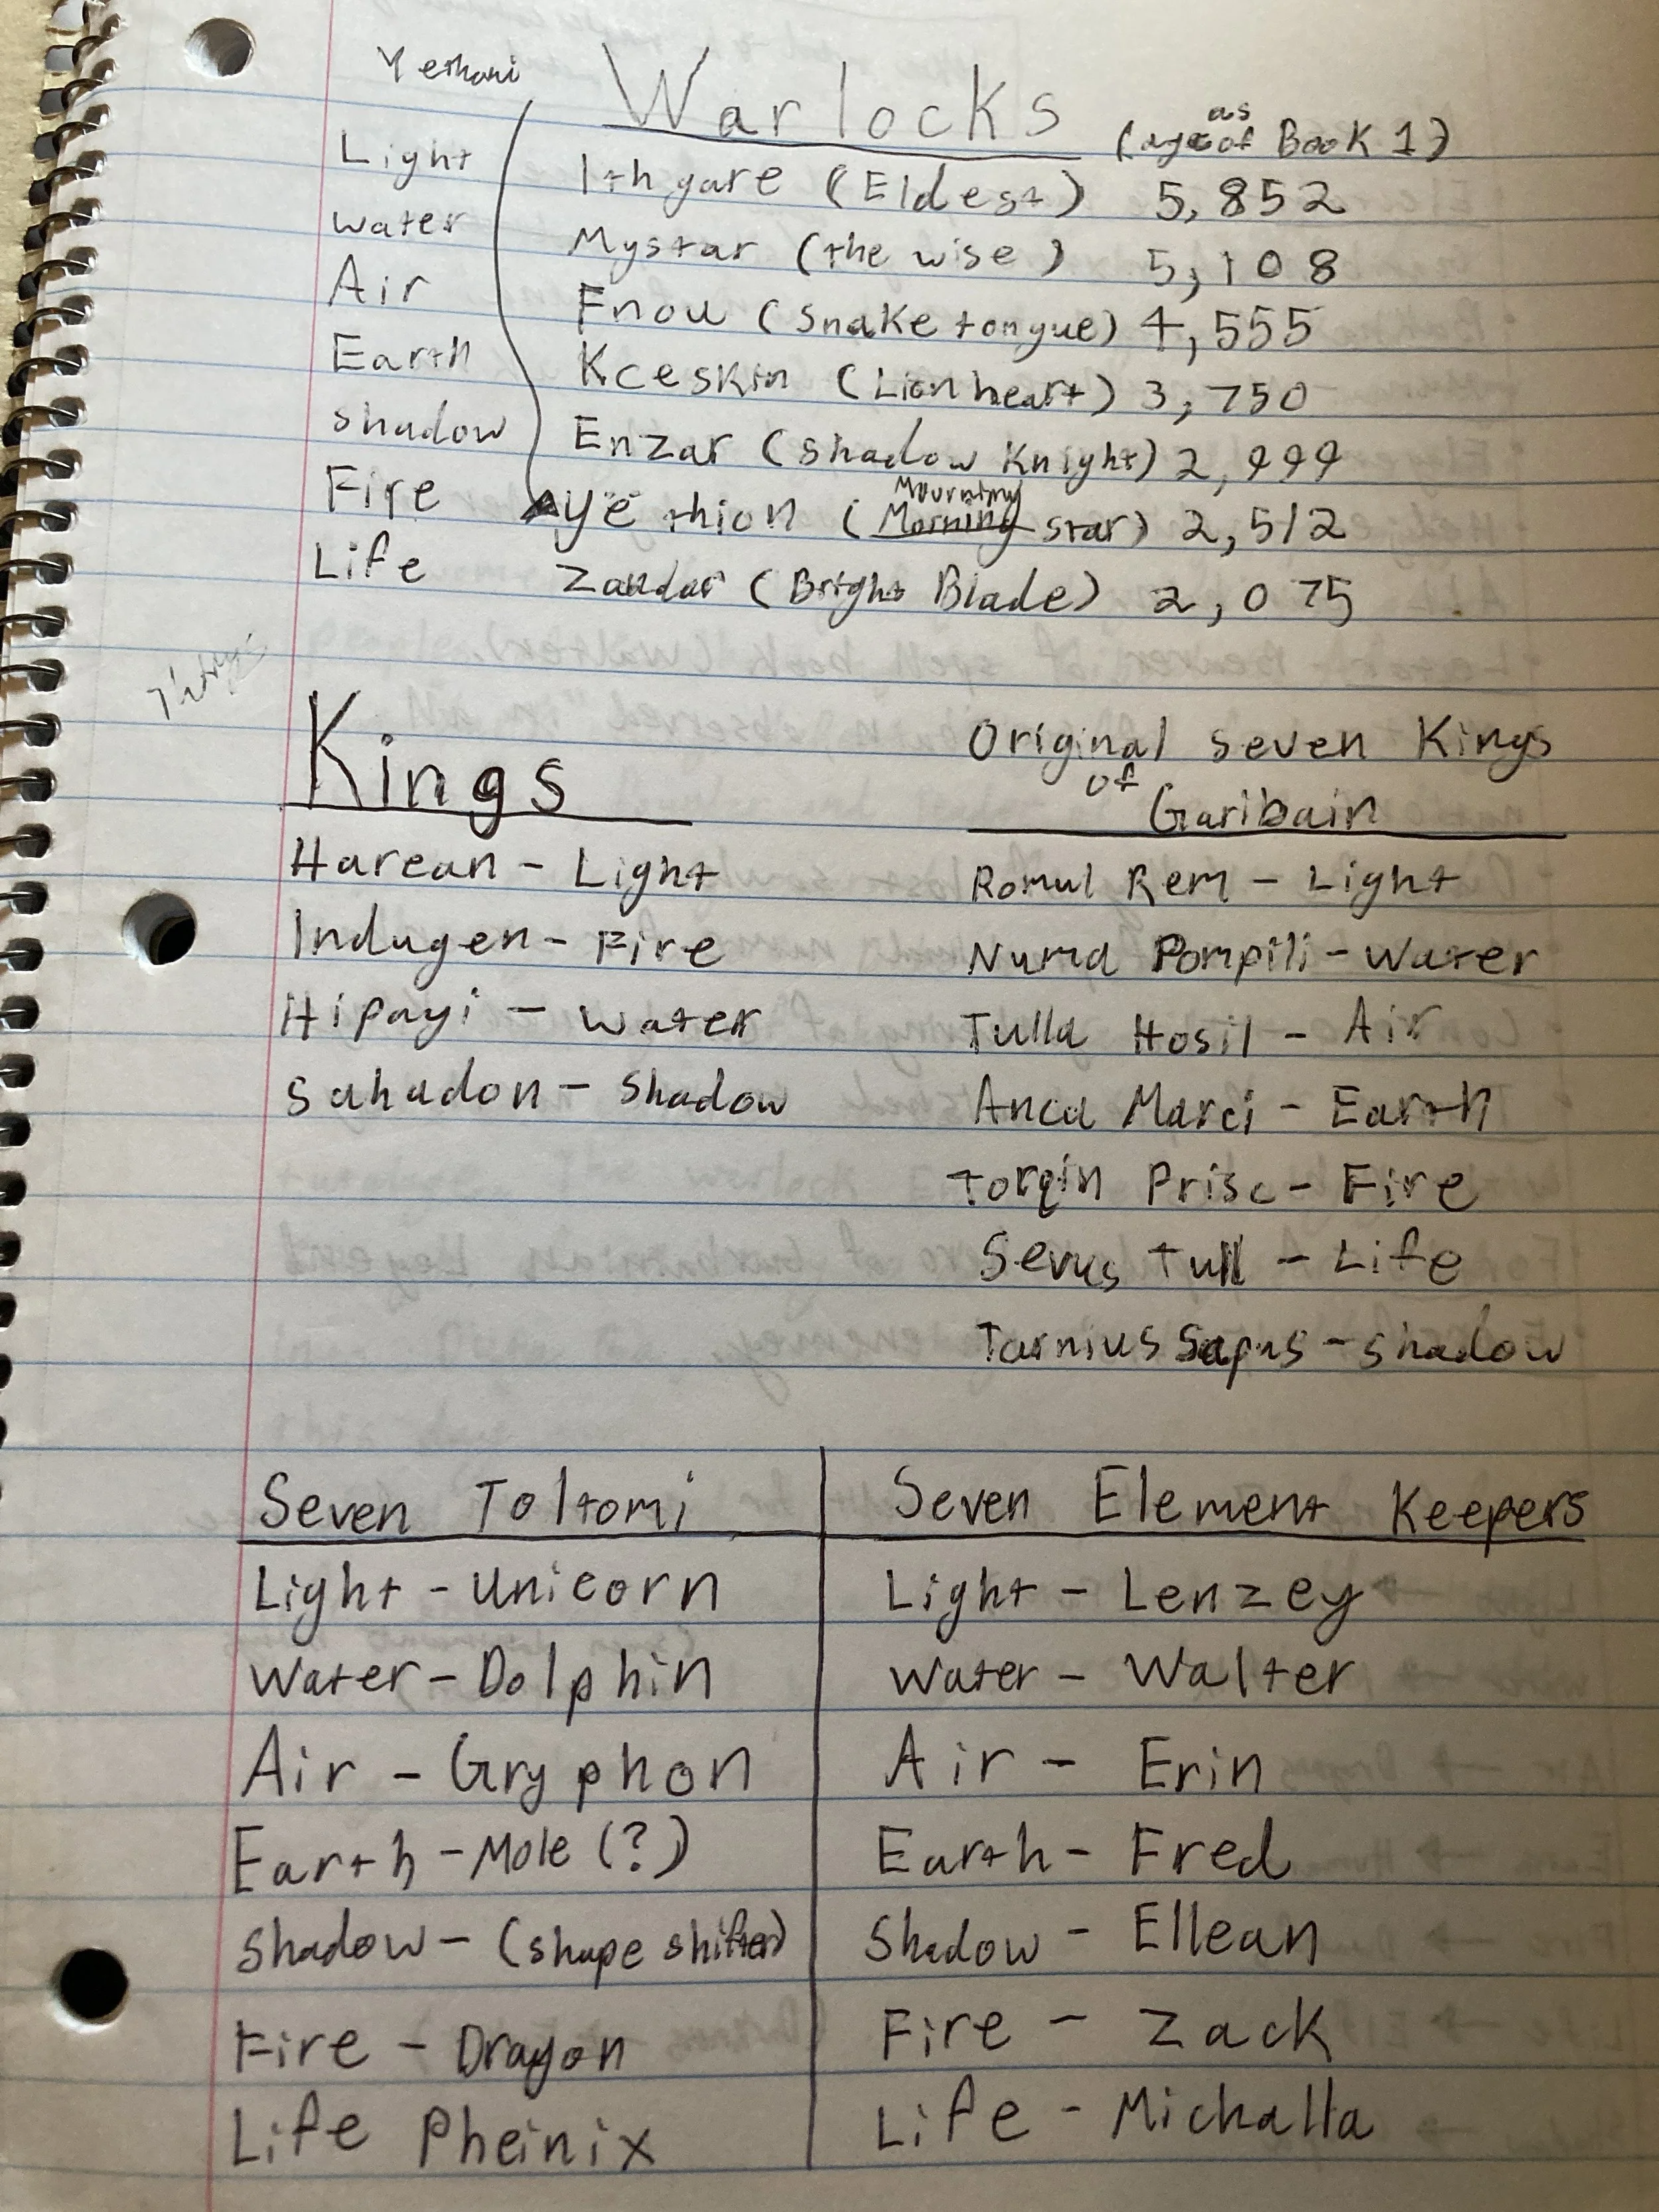 Warlocks (age as of Book 1)
Light Ithgare (Eldest) 5,852
water Mystar (the wise) 5,108
Air Fnou (snake tongue) 4,555
Earth Kceskin (Lionheart) 3,750
shadow Enzar (shadow Knight) 2,999
Fire Ayethion (Morning Mourning star) 2,512
Life Zandar (Bright Blade) 2,075
Kings
Harean - Light
Indugen - Fire
Hipayi - water
Sahadon - shadow
Original seven Kings
of
Garibain
Romul Rem - Light
Numa Pompili - water
Tulla Hosil - Air
Anca Marci - Earth
Torqin Prisc - Fire
Servus Tull - Life
Tarnius Sapus - shadow
Seven Toltomi
Light - Unicorn
Water - Dolphin
Air - Gryphon
Earth - Mole (?)
Shadow - (shape shifter)
Fire - Dragon
Life Pheinix
Seven Element Keepers
Light - Lenzey
Water - Walter
Air - Erin
Earth - Fred
Shadow - Ellean
Fire - Zack
Life - Michalla